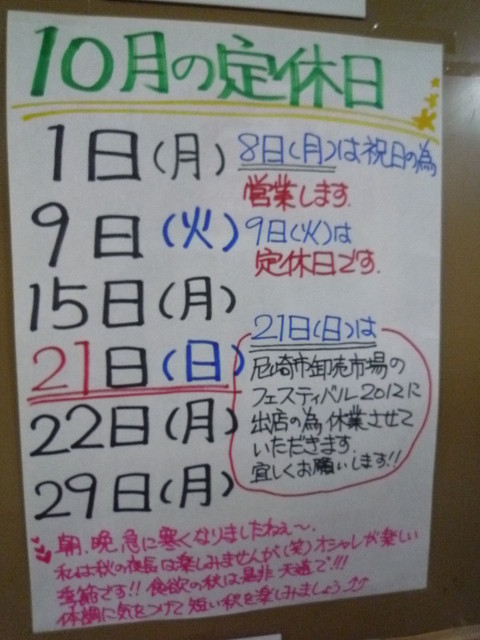 10月の定休日
1日(月)
8日(月)は祝日の為
営業します.
9日(火)
9日(火)は
定休日です.
15日(月)
21日(日)
21日(日)は
尼崎市卸売市場の
フェスティバル2012に
出店の為休業させて
いただきます.
宜しくお願いします!!
22日(月)
29日(月)
朝、晩、急に寒くなりましたねぇ〜.
私は秋の夜長は楽しみませんが(笑)オシャレが楽しい
季節です!! 食欲の秋は是非 天道で!!!
体調に気をつけて短い秋を楽しみましょう